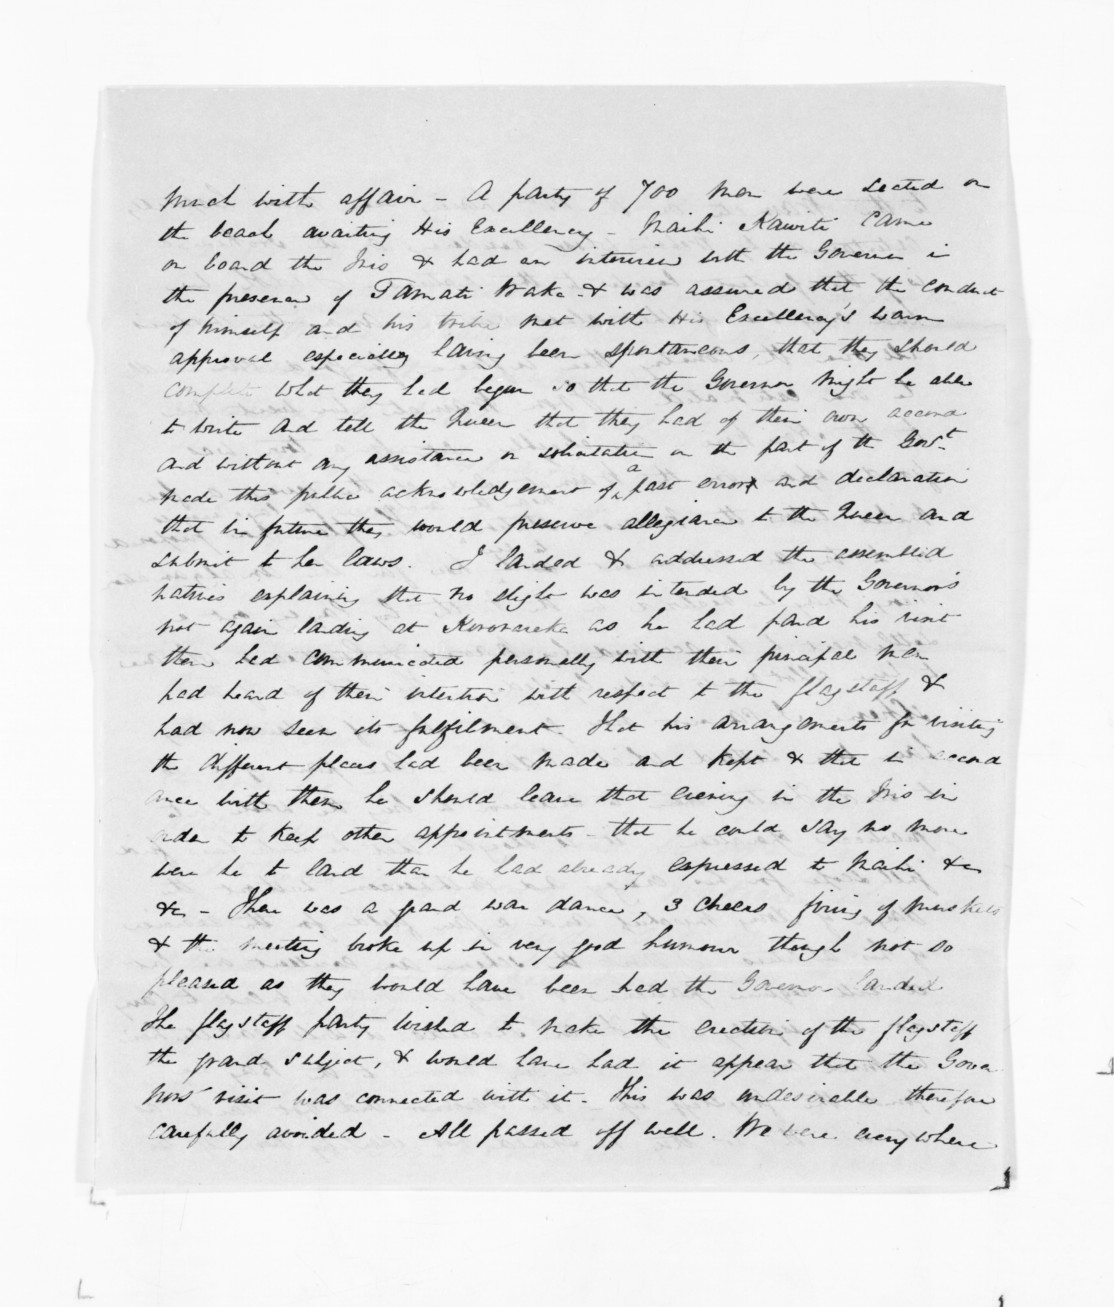 much with affair - A party of 700 men were seated on
the beach awaiting His Excellency - Maihi Kawiti came
on board the Iris & had an interview with the Governor in
the presence of Tamati Waka - & was assured that the conduct
of himself and his tribe met with His Excellency's warm
approval especially having been spontaneous, that they should
complete what they had begun so that the Governor might be able
to write and tell the Queen that they had of their own accord
and without any assistance or solicitation on the part of the Govt.
made this public acknowledgement of a past error and declaration
that in future they would preserve allegiance to the Queen and
submit to her laws. I landed & addressed the assembled
natives explaining that no slight was intended by the Governor's
not again landing at Kororareka as he had paid his visit
there had communicated personally with their principal men
had heard of their intention with respect to the flagstaff &
had now seen its fulfilment. That his arrangements for visiting
the different places had been made and kept & that in accord
ance with them he should leave that evening in the Iris in
order to keep other appointments - that he could say no more
were he to land than he had already expressed to Maihi &c
&c - There was a grand war dance, 3 cheers firing of muskets
& the meeting broke up in very good humour though not so
pleased as they would have been had the Governor landed
The flagstaff party wished to make the erection of the flagstaff
the grand subject, & would have had it appear that the Gover
nors' visit was connected with it. This was undesirable therefore
carefully avoided - All passed off well. We were everywhere